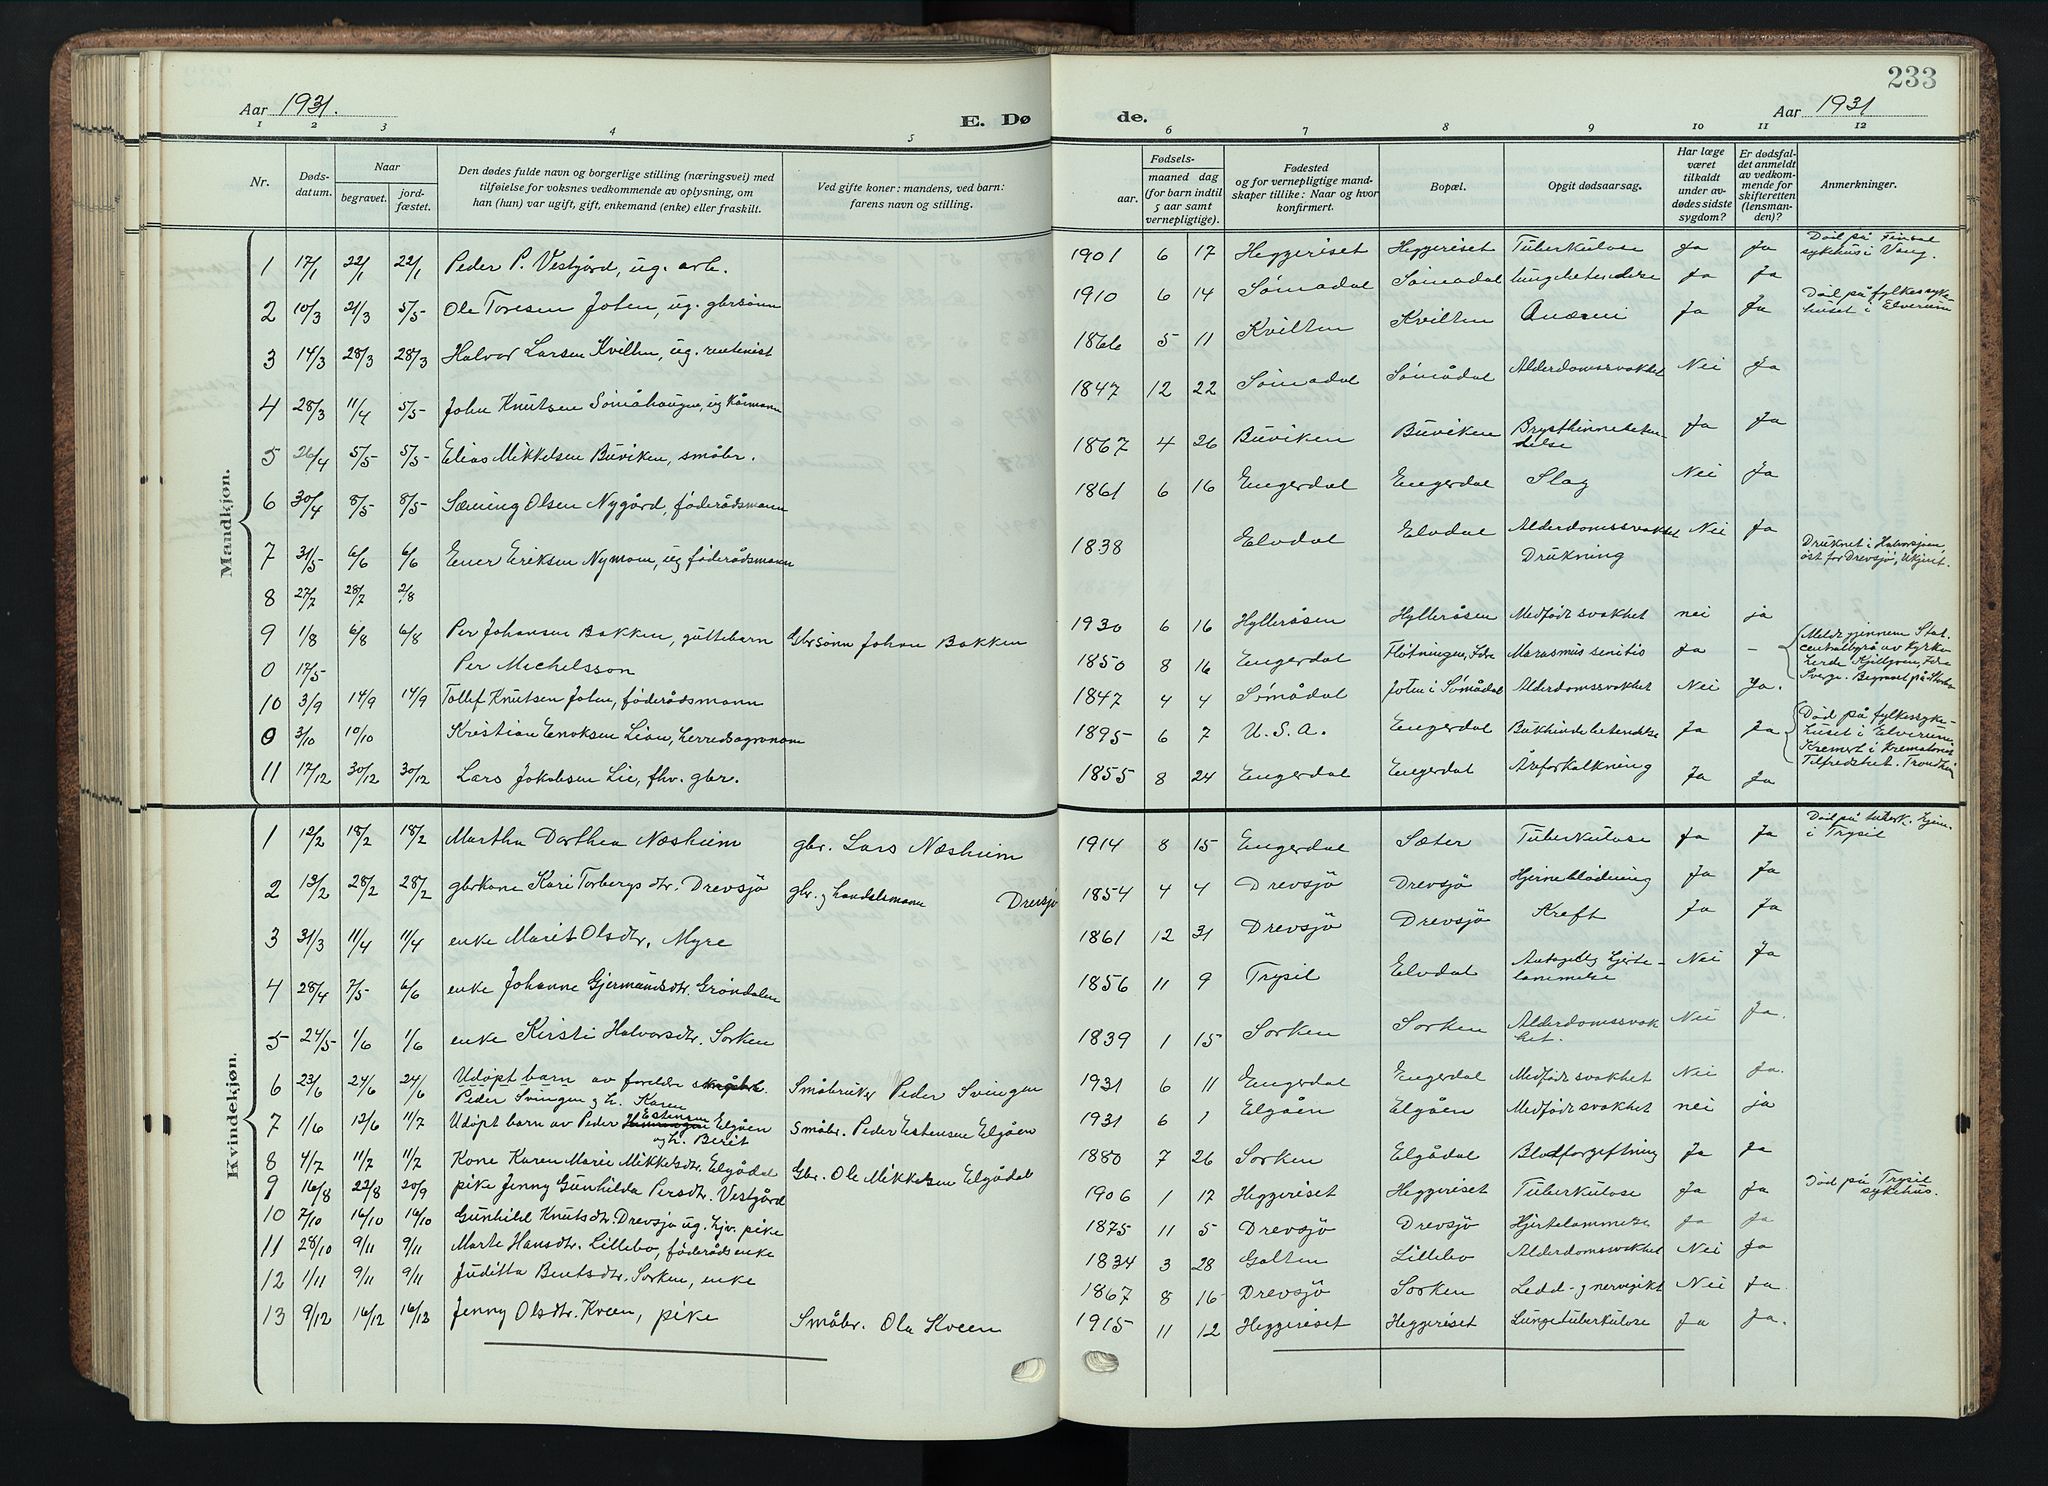 233
Aar 1931.
E. Dø
de.
Aar 1931
1 2 3 4 5
6 7 8 9 10 11 12
Nr.
Døds-
datum.
Naar
begravet.
jord-
fæstet.
Den dødes fulde navn og borgerlige stilling (næringsvei) med
tilføielse for voksnes vedkommende av oplysning, om
han (hun) var ugift, gift, enkemand (enke) eller fraskilt.
Ved gifte koner: mandens, ved barn:
farens navn og stilling.
Fødsels-
aar.
maaned dag
(for barn indtil
5 aar samt
vernepligtige).
Fødested
og for vernepligtige mand-
skaper tillike: Naar og hvor
konfirmert.
Bopæl.
Opgit dødsaarsag.
Har læge
været
tilkaldt
under av-
dødes sidste
sygdom?
Er dødsfal-
det anmeldt
av vedkom-
mende for
skifteretten
(lensman-
den)?
Anmerkninger.
Mandkjøn.
1 17/1 22/1 22/1 Peder P. Vestgård, ug. arb. 1901 6 17 Heggeriset Heggeriset Tuberkulose Ja ja Död på
sykehus i Vang.
2 10/3 21/3 5/5 Ole Toresen Joten, ug. gbrsönn 1910 6 14 Sömådal Sömådal Lungebetendelse Ja Ja Död på fylkessyke-
huset i Elverum
3 14/3 28/3 28/3 Halvor Larsen Kvilten, ug. rentenist 1866 5 11 Kvilten Kvilten Anæmi Ja Ja
4 28/3 11/4 5/5 John Knutsen Sömåhaugen, ug Kårmann 1847 12 22 Sömådal Sömådal Alderdomssvakhet Nei Ja
5 26/4 5/5 5/5 Elias Mikkelsen Buviken, småbr. 1867 4 26 Buviken Buviken Brysthinnebeten-
delse Ja Ja
6 30/4 8/5 8/5 Sæming Olsen Nygård, föderådsmann 1861 6 16 Engerdal Engerdal Slag Nei Ja
7 31/5 6/6 6/6 Ener Eriksen Nymoen, ug föderådsmann 1838 Elvdal Elvdal Alderdomssvakhet Nei Ja
8 27/7 28/7 2/8 Drukning Druknet i Halvorsjoen,
öst for Drevsjö, Ukjent.
9 1/8 6/8 6/8 Per Johansen Bakken, guttebarn Gbrsönn Johan Bakken 1930 6 16 Hylleråsen Hylleråsen Medfödt svakhet nei ja
0 17/5 Per Michelsson 1850 8 16 Engerdal Flötningen, Idre Marasmus senilis Ja - Meldt gjennem Stat.
centralbyrå av Kyrko-
herde Kjellgren, Idre
Sverge. Begravet på
10 3/9 14/9 14/9 Tollef Knutsen Joten, föderådsmann 1847 4 4 Sömådal Joten i Sömådal Alderdomssvakhet Nei Ja.
0 3/10 10/10 Kristian Enoksen Lien, herredsagronom 1895 6 7 U.S.A. Engerdal Bukhindebetendelse Ja Ja Död på fylkessyke-
huset i Elverum
Kremert i Krematoriet
Tilfredshet. Trondhim
11 17/12 30/12 30/12 Lars Jakobsen Lie, fhv. gbr. 1855 8 24 Engerdal Engerdal Åreforkalkning Ja Ja
Kvindekjøn.
1 12/2 18/2 18/2 Martha Dorthea Næsheim gbr. Lars Næsheim 1914 8 15 Engerdal Sæter Tuberkulose Ja Ja Död på tuberk. hjem
i Trysil
2 13/2 28/2 28/2 gbrkone Kari Torbergsdtr. Drevsjö gbr. og handelsmann Drevsjö 1854 4 4 Drevsjö Drevsjö Hjerneblödning Ja Ja
3 31/3 11/4 11/4 enke Marit Olsdtr. Myre 1861 12 31 Drevsjö Drevsjö Kreft Ja Ja
4 28/4 7/5 6/6 enke Johanne Gjermundsdtr. Gröndalen 1856 11 9 Trysil Elvdal Antagelig hjerte-
lammelse Nei Ja
5 24/5 1/6 1/6 enke Kirsti Halvorsdtr. Sorken 1839 1 15 Sorken Sorken Alderdomssvak
het. Nei Ja.
6 23/6 24/6 24/6 Udöpt barn av foreldre småbr.
Peder Svingen og h. Karen Småbruker Peder Svingen 1931 6 11 Engerdal Engerdal Medfödt svakhet Nei Ja.
7 1/6 12/6 11/7 Udöpt barn av Peder Estensen Elgåen
og h. Berit Småbr. Peder Estensen Elgåen 1931 6 1 Elgåen Elgåen Medfödt svakhet nei ja
8 4/7 11/7 11/7 Kone Karen Marie Mikkelsdtr. Elgådal Gbr. Ole Mikkelsen Elgådal 1880 7 26 Sorken Elgådal Blodforgiftning Ja Ja
9 16/8 22/8 20/9 pike Jenny Gunhilda Persdtr. Vestgård 1906 1 17 Heggeriset Heggeriset Tuberkulose Ja Ja Död på Trysil
sykehus.
10 7/10 16/10 16/10 Gunhild Knutsdtr. Drevsjö ug. hjv. pike 1875 11 5 Drevsjö Drevsjö Hjertelammelse Ja Ja
11 28/10 9/11 9/11 Marte Hansdtr. Lillebo, föderådsenke 1834 3 28 Galten Lillebo Alderdomssvakhet Nei Ja
12 1/11 9/11 9/11 Juditta Bentsdtr. Sorken, enke 1867 8 16 Drevsjö Sorken Ledd- og nervegikt Nei Ja.
13 9/12 16/12 16/12 Jenny Olsdtr. Kveen, pike Småbr. Ola Kveen 1915 11 12 Heggeriset Heggeriset Lungetuberkulose Ja Ja.